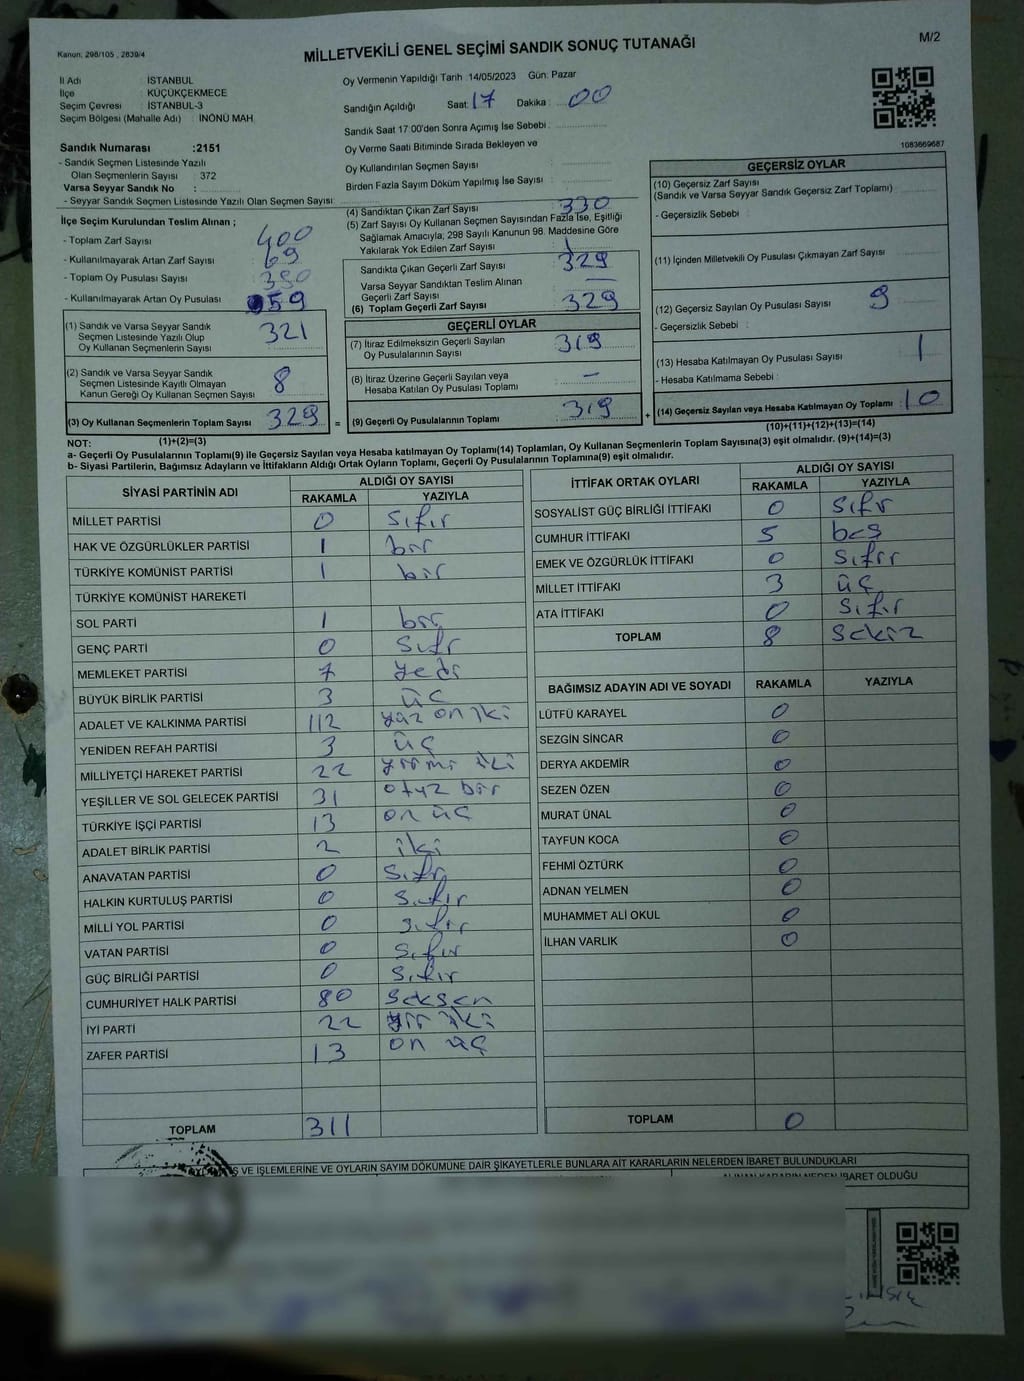 Kanun: 298/105 , 2839/4
MİLLETVEKİLİ GENEL SEÇİMİ SANDIK SONUÇ TUTANAĞI
M/2
İl Adı İSTANBUL
İlçe : KÜÇÜKÇEKMECE
Seçim Çevresi : İSTANBUL-3
Seçim Bölgesi (Mahalle Adı) : İNÖNÜ MAH
Sandık Numarası :2151
- Sandık Seçmen Listesinde Yazılı
Olan Seçmenlerin Sayısı : 372
Varsa Seyyar Sandık No :
- Seyyar Sandık Seçmen Listesinde Yazılı Olan Seçmen Sayısı:
Oy Vermenin Yapıldığı Tarih :14/05/2023 Gün: Pazar
Sandığın Açıldığı Saat: 17 Dakika : 00
Sandık Saat 17:00'den Sonra Açımış İse Sebebi :
Oy Verme Saati Bitiminde Sırada Bekleyen ve
Oy Kullandırılan Seçmen Sayısı
Birden Fazla Sayım Döküm Yapılmış İse Sayısı :
1083669687
İlçe Seçim Kurulundan Teslim Alınan ;
- Toplam Zarf Sayısı : 400
- Kullanılmayarak Artan Zarf Sayısı : 69
- Toplam Oy Pusulası Sayısı
- Kullanılmayarak Artan Oy Pusulası 59
(1) Sandık ve Varsa Seyyar Sandık
Seçmen Listesinde Yazılı Olup
Oy Kullanan Seçmenlerin Sayısı 321
(2) Sandık ve Varsa Seyyar Sandık
Seçmen Listesinde Kayıtlı Olmayan
Kanun Gereği Oy Kullanan Seçmen Sayısı 8
(3) Oy Kullanan Seçmenlerin Toplam Sayısı 329 =
(4) Sandıktan Çıkan Zarf Sayısı : 330
(5) Zarf Sayısı Oy Kullanan Seçmen Sayısından Fazla İse, Eşitliği
Sağlamak Amacıyla, 298 Sayılı Kanunun 98. Maddesine Göre
Yakılarak Yok Edilen Zarf Sayısı : 1
Sandıkta Çıkan Geçerli Zarf Sayısı : 329
Varsa Seyyar Sandıktan Teslim Alınan
Geçerli Zarf Sayısı : —
(6) Toplam Geçerli Zarf Sayısı : 329
GEÇERLİ OYLAR
(7) İtiraz Edilmeksizin Geçerli Sayılan
Oy Pusulalarının Sayısı : 319
(8) İtiraz Üzerine Geçerli Sayılan veya
Hesaba Katılan Oy Pusulası Toplamı : —
(9) Geçerli Oy Pusulalarının Toplamı : 319 +
GEÇERSİZ OYLAR
(10) Geçersiz Zarf Sayısı
(Sandık ve Varsa Seyyar Sandık Geçersiz Zarf Toplamı) :
- Geçersizlik Sebebi :
(11) İçinden Milletvekili Oy Pusulası Çıkmayan Zarf Sayısı :
(12) Geçersiz Sayılan Oy Pusulası Sayısı : 9
- Geçersizlik Sebebi :
(13) Hesaba Katılmayan Oy Pusulası Sayısı : 1
- Hesaba Katılmama Sebebi :
(14) Geçersiz Sayılan veya Hesaba Katılmayan Oy Toplamı : 10
(10)+(11)+(12)+(13)=(14)
NOT: (1)+(2)=(3)
a- Geçerli Oy Pusulalarının Toplamı(9) ile Geçersiz Sayılan veya Hesaba katılmayan Oy Toplamı(14) Toplamları, Oy Kullanan Seçmenlerin Toplam Sayısına(3) eşit olmalıdır. (9)+(14)=(3)
b- Siyasi Partilerin, Bağımsız Adayların ve İttifakların Aldığı Ortak Oyların Toplamı, Geçerli Oy Pusulalarının Toplamına(9) eşit olmalıdır.
SİYASİ PARTİNİN ADI ALDIĞI OY SAYISI
RAKAMLA YAZIYLA
MİLLET PARTİSİ 0 sıfır
HAK VE ÖZGÜRLÜKLER PARTİSİ 1 bir
TÜRKİYE KOMÜNİST PARTİSİ 1 bir
TÜRKİYE KOMÜNİST HAREKETİ
SOL PARTİ 1 bir
GENÇ PARTİ 0 Sıfır
MEMLEKET PARTİSİ 7 yedi
BÜYÜK BİRLİK PARTİSİ 3 üç
ADALET VE KALKINMA PARTİSİ 112 yüz on iki
YENİDEN REFAH PARTİSİ 3 üç
MİLLİYETÇİ HAREKET PARTİSİ 22 yirmi iki
YEŞİLLER VE SOL GELECEK PARTİSİ 31 otuz bir
TÜRKİYE İŞÇİ PARTİSİ 13 on üç
ADALET BİRLİK PARTİSİ 2 iki
ANAVATAN PARTİSİ 0 Sıfır
HALKIN KURTULUŞ PARTİSİ 0 Sıfır
MİLLİ YOL PARTİSİ 0 Sıfır
VATAN PARTİSİ 0 Sıfır
GÜÇ BİRLİĞİ PARTİSİ 0 Sıfır
CUMHURİYET HALK PARTİSİ 80 Seksen
İYİ PARTİ 22 iki
ZAFER PARTİSİ 13 on üç
TOPLAM 311
İTTİFAK ORTAK OYLARI ALDIĞI OY SAYISI
RAKAMLA YAZIYLA
SOSYALİST GÜÇ BİRLİĞİ İTTİFAKI 0 Sıfır
CUMHUR İTTİFAKI 5 beş
EMEK VE ÖZGÜRLÜK İTTİFAKI 0 Sıfır
MİLLET İTTİFAKI 3 üç
ATA İTTİFAKI 0 Sıfır
TOPLAM 8 Sekiz
BAĞIMSIZ ADAYIN ADI VE SOYADI RAKAMLA YAZIYLA
LÜTFÜ KARAYEL 0
SEZGİN SİNCAR 0
DERYA AKDEMİR 0
SEZEN ÖZEN 0
MURAT ÜNAL 0
TAYFUN KOCA 0
FEHMİ ÖZTÜRK 0
ADNAN YELMEN 0
MUHAMMET ALİ OKUL 0
İLHAN VARLIK 0
TOPLAM 0
VE İŞLEMLERİNE VE OYLARIN SAYIM DÖKÜMÜNE DAİR ŞİKAYETLERLE BUNLARA AİT KARARLARIN NELERDEN İBARET BULUNDUKLARI
ALINAN KARARIN NEDEN İBARET OLDUĞU